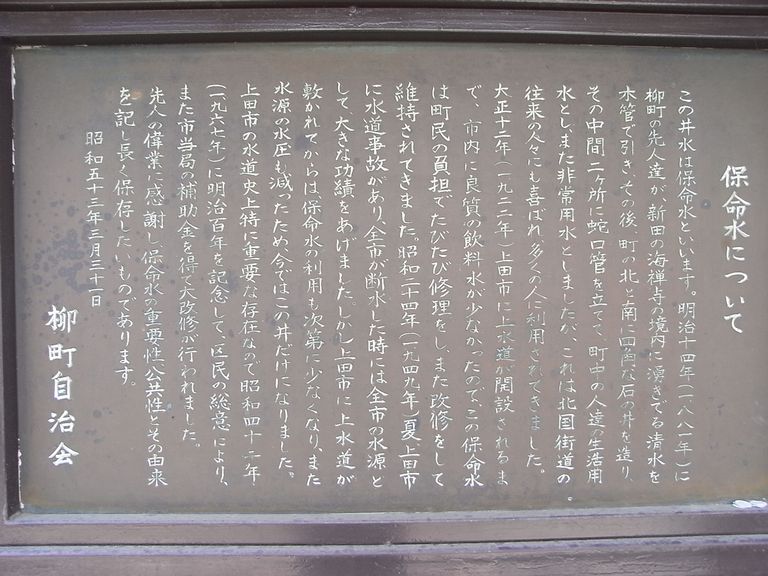 保命水について
この井水は保命水といいます。明治十四年(一八八一年)に
柳町の先人達が、新田の海禅寺の境内に湧きでる清水を
木管で引き、その後、町の北と南に四角な石の井を造り、
その中間二ヶ所に蛇口管を立てて、町中の人達の生活用
水とし、また非常用水としましたが、これは北国街道の。
往来の人々にも喜ばれ、多くの人に利用されてきました。
大正十二年(一九二三年)上田市に上水道が開設されるま
で、市内に良質の飲料水が少なかったので、この保命水
は町民の負担でたびたび修理をし、また改修をして
維持されてきました。昭和二十四年(一九四九年)夏上田市
に水道事故があり、全市が断水した時には全市の水源と
して、大きな功績をあげました。しかし上田市に上水道が
敷かれてからは保命水の利用も次第に少なくなり、また
水源の水圧も減ったため、今ではこの井だけになりました。
上田市の水道史上特に重要な存在なので昭和四十二年
(一九六七年)に明治百年を記念して、区民の総意により、
また市当局の補助金を得て大改修が行われました。
先人の偉業に感謝し、保命水の重要性、公共性とその由来
を記し長く保存したいものであります。
昭和五十三年三月三十一日
柳町自治会